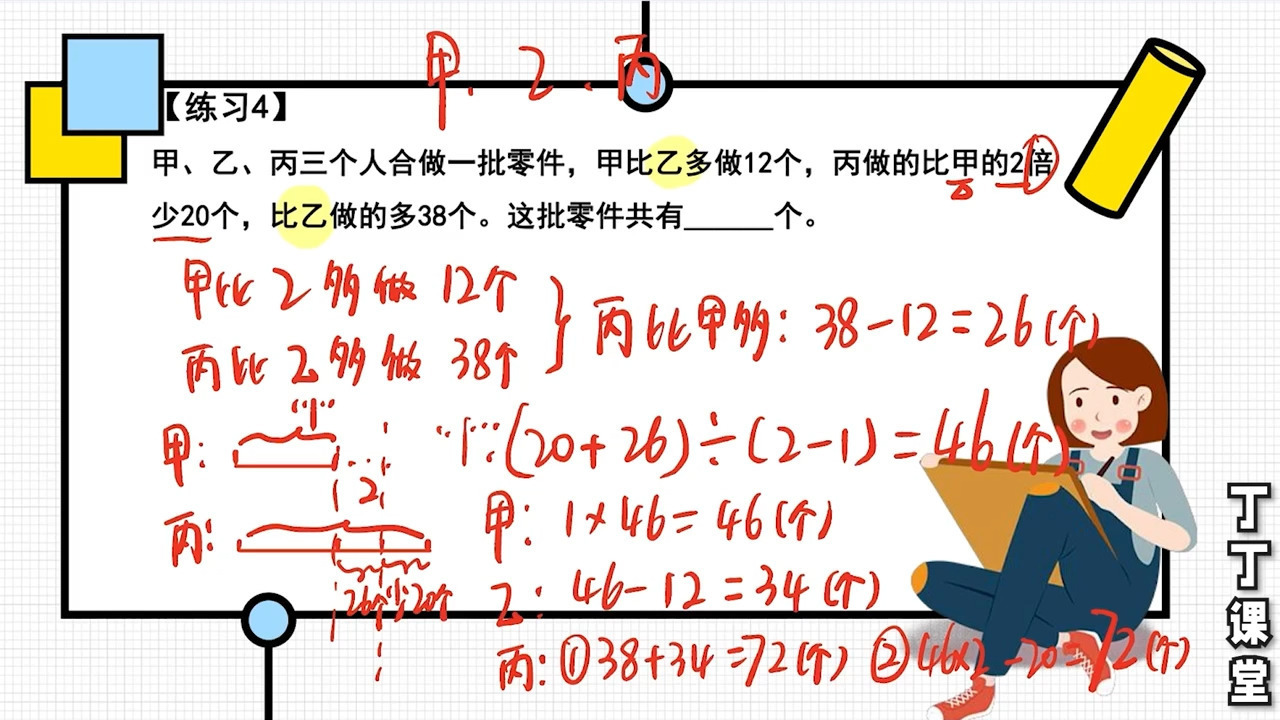 甲.乙.丙
【练习4】
甲、乙、丙三个人合做一批零件，甲比乙多做12个，丙做的比甲的2倍
少20个，比乙做的多38个。这批零件共有______个。
甲比乙多做12个
丙比乙多做38个
丙比甲多：38-12=26(个)
甲：“1”
“1”：(20+26)÷(2-1)=46(个)
2
丙：
26个 少20个
甲：1×46=46(个)
乙：46-12=34(个)
丙：①38+34=72(个) ②46×2-20=72(个)
丁丁课堂